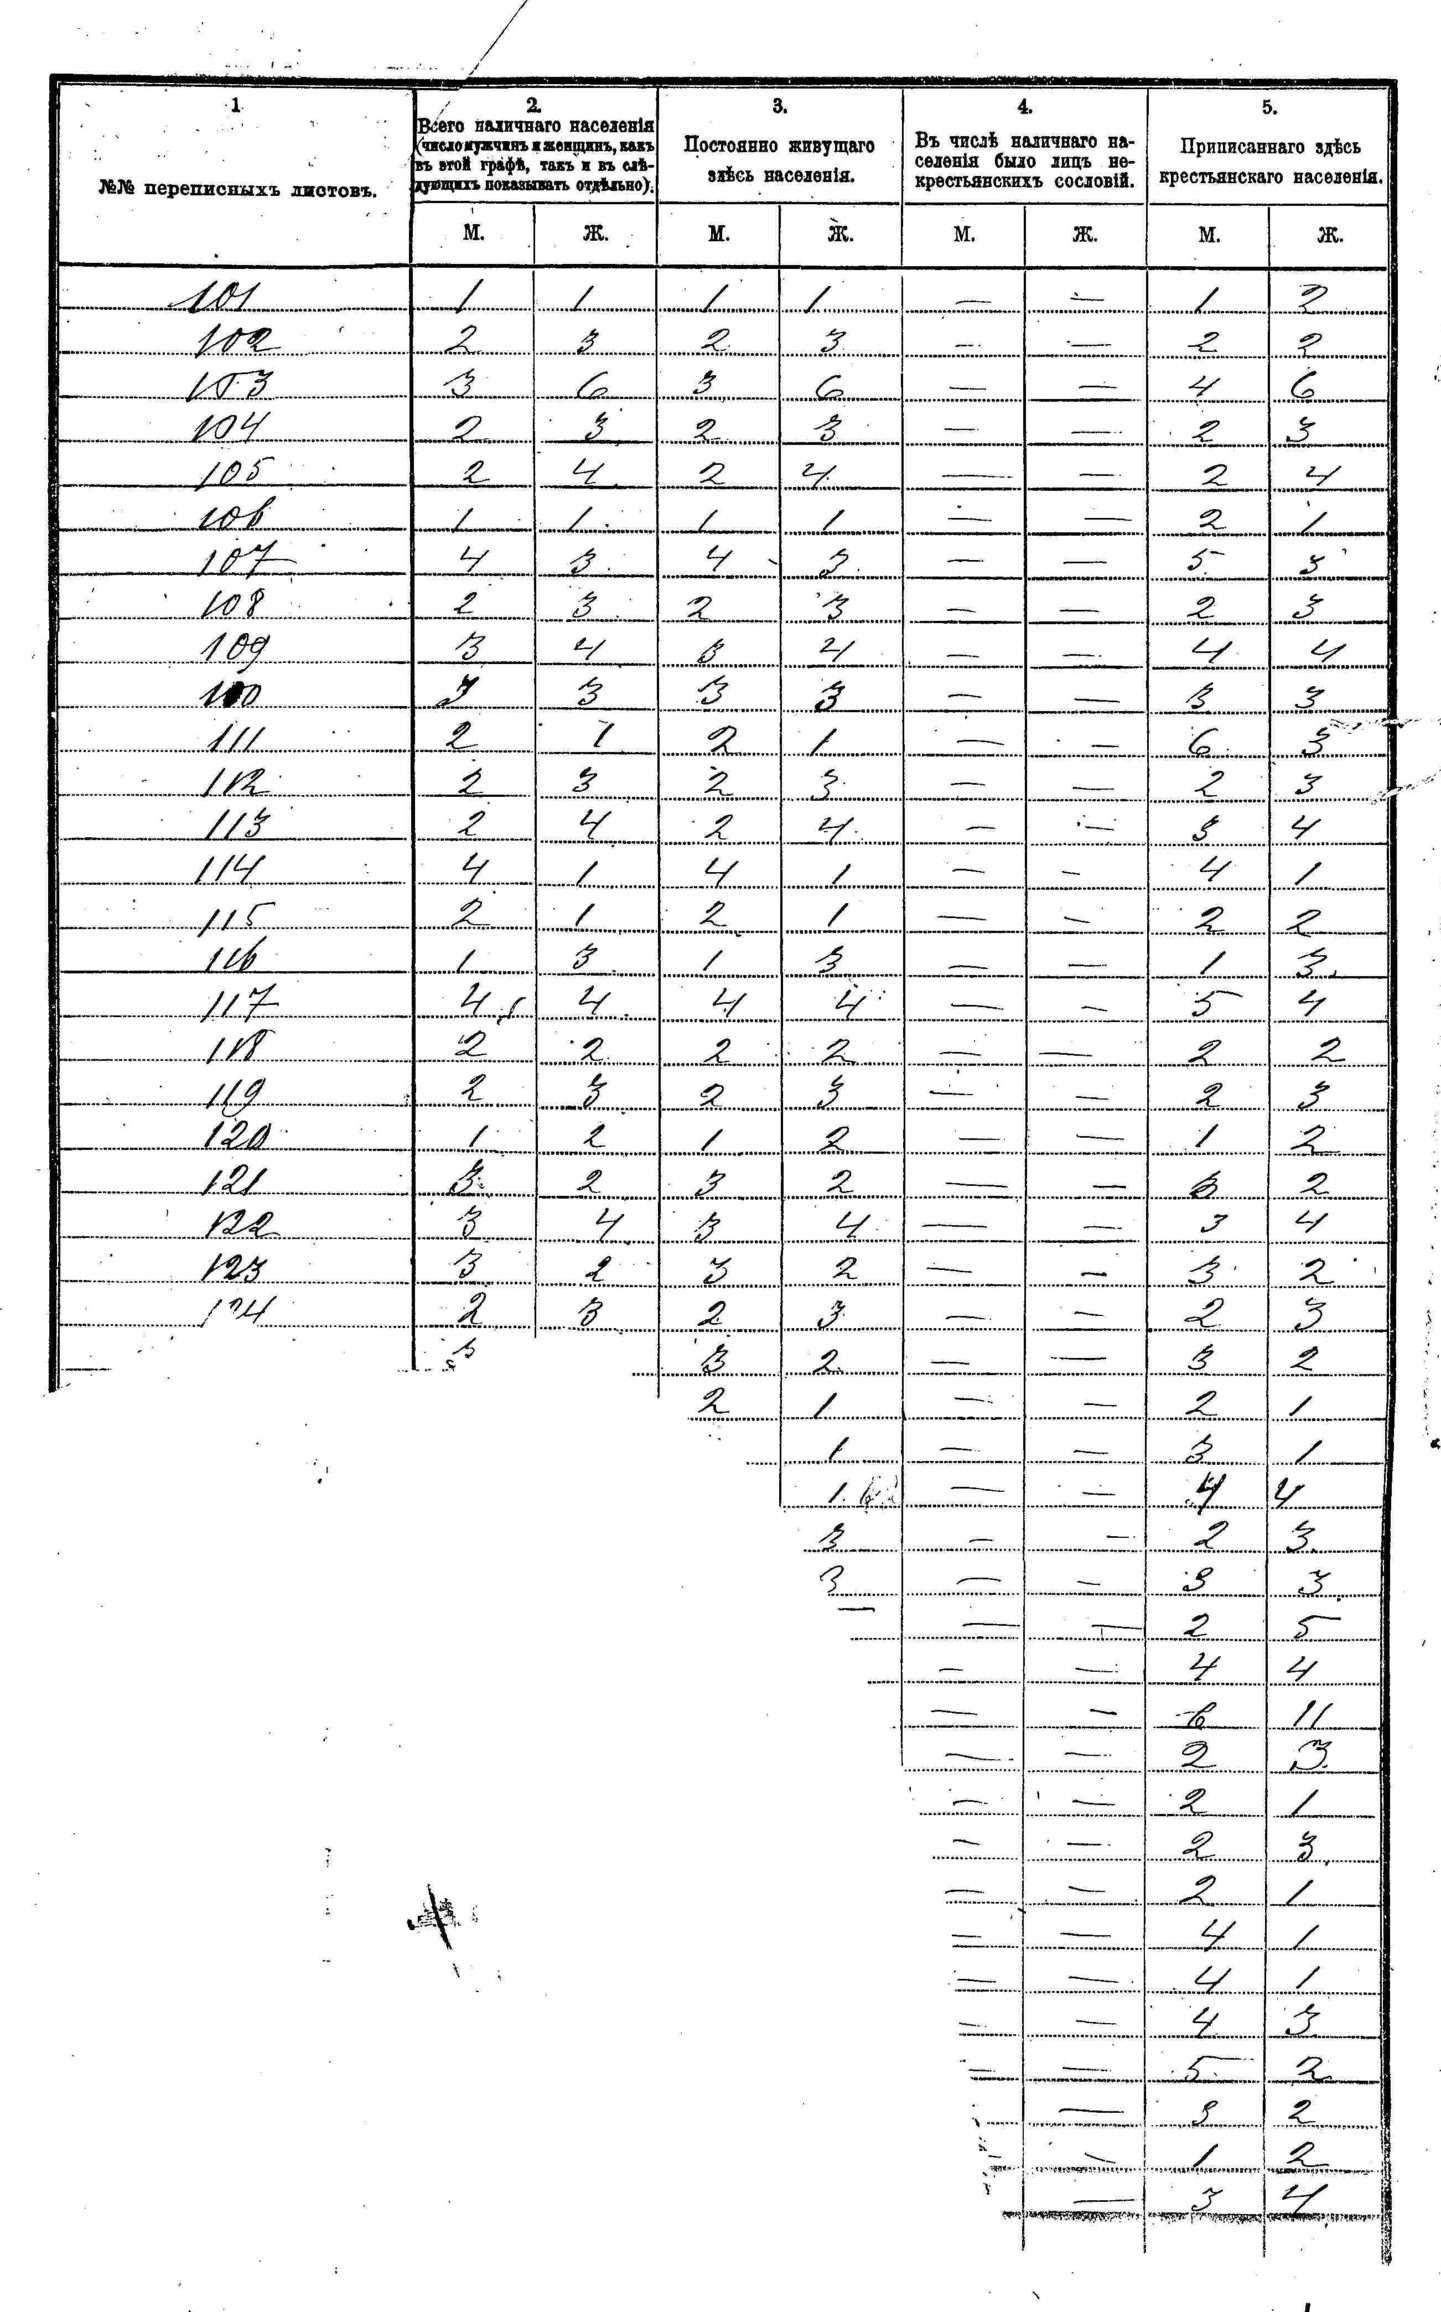 1 2. 3. 4. 5.
№№ переписныхъ листовъ.
Всего наличнаго населенія
(число мужчинъ и женщинъ, какъ
въ этой графѣ, такъ и въ слѣ-
дующихъ показывать отдѣльно).
Постоянно живущаго
здѣсь населенія.
Въ числѣ наличнаго на-
селенія было лицъ не-
крестьянскихъ сословій.
Приписаннаго здѣсь
крестьянскаго населенія.
М. Ж. М. Ж. М. Ж. М. Ж.
101 1 1 1 1 — — 1 2
102 2 3 2 3 — — 2 2
103 3 6 3 6 — — 4 6
104 2 3 2 3 — — 2 3
105 2 4 2 4 — — 2 4
106 1 1 1 1 — — 2 1
107 4 3 4 3 — — 5 3
108 2 3 2 3 — — 2 3
109 3 4 3 4 — — 4 4
3 3 3 3 — — 3 3
111 2 1 2 1 — — 6 3
112 2 3 2 3 — — 2 3
113 2 4 2 4 — — 3 4
114 4 1 4 1 — — 4 1
115 2 1 2 1 — — 2 2
116 1 3 1 3 — — 1 3
117 4 4 4 4 — — 5 4
118 2 2 2 2 — — 2 2
119 2 3 2 3 — — 2 3
120 1 2 1 2 — — 1 2
121 3 2 3 2 — — 3 2
122 3 4 3 4 — — 3 4
123 3 2 3 2 — — 3 2
124 2 3 2 3 — — 2 3
3 3 2 — — 3 2
2 1 — — 2 1
1 — — 3 1
1 — — 4 4
3 — — 2 3
3 — — 3 3
— — 2 5
— — 4 4
— — 6 11
— — 2 3
— — 2 1
— — 2 3
— — 2 1
— — 4 1
— — 4 1
— — 4 3
— — 5 2
— 3 2
— 1 2
— 3 4